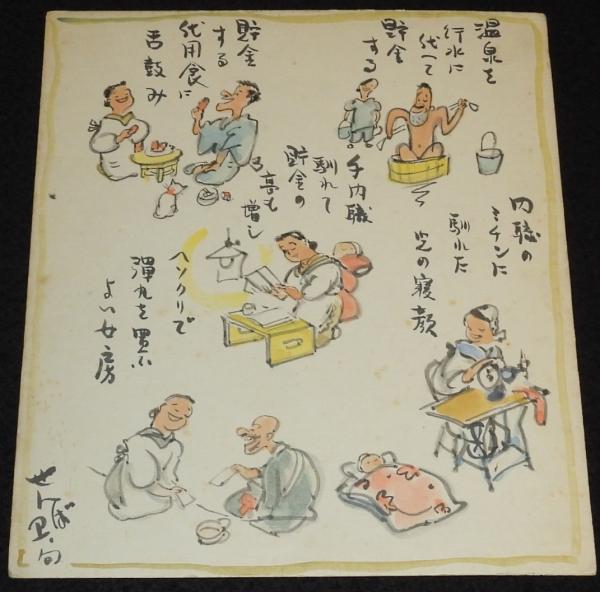 温泉を
行水に
代へて
貯金
する
貯金
する
代用食に
舌鼓み
手内職
馴れて
貯金の
高も
増し
内職の
ミシンに
馴れた
児の寝顔
ヘソクリで
弾丸を買ふ
よい女房
せんば